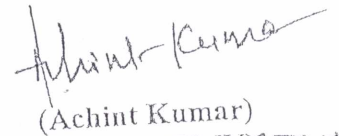 Achint Kumar
(Achint Kumar)